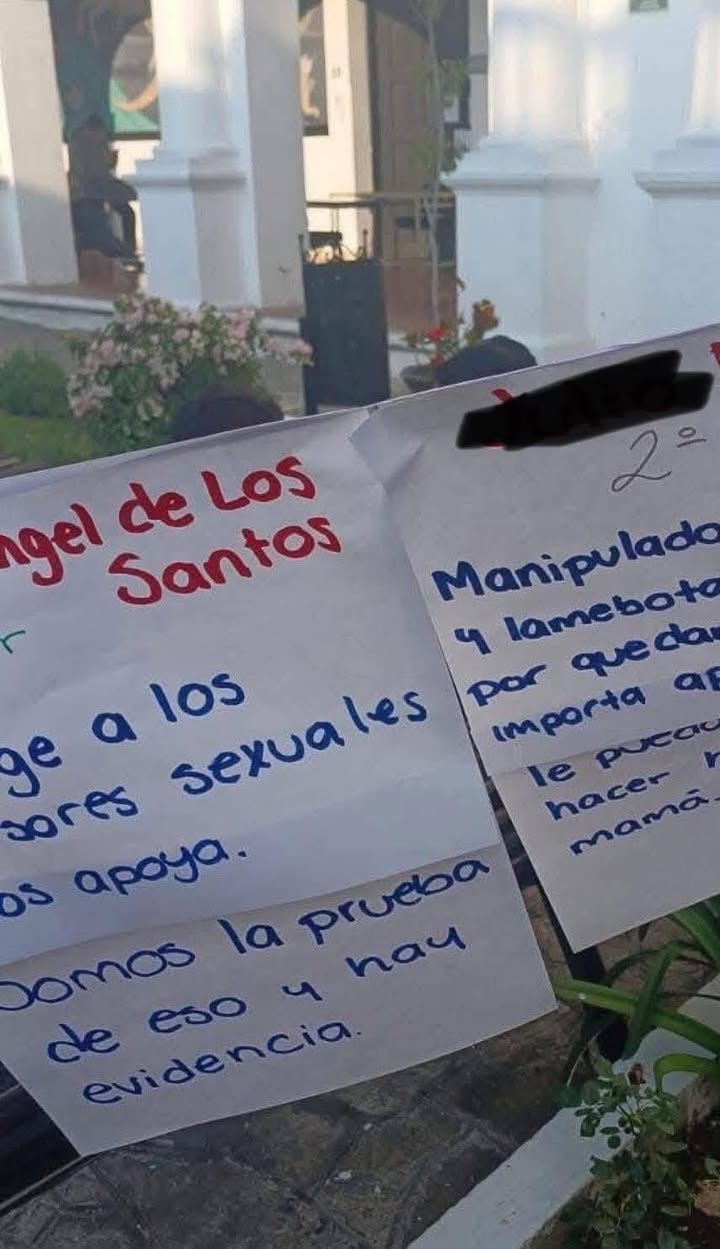 ngel de Los
Santos
r
ge a los
sores sexuales
os apoya.
Somos la prueba
de eso y hay
evidencia.
2º
Manipulado
y lamebota
por quedar
importa ap
le pueda
hacer
mamá.